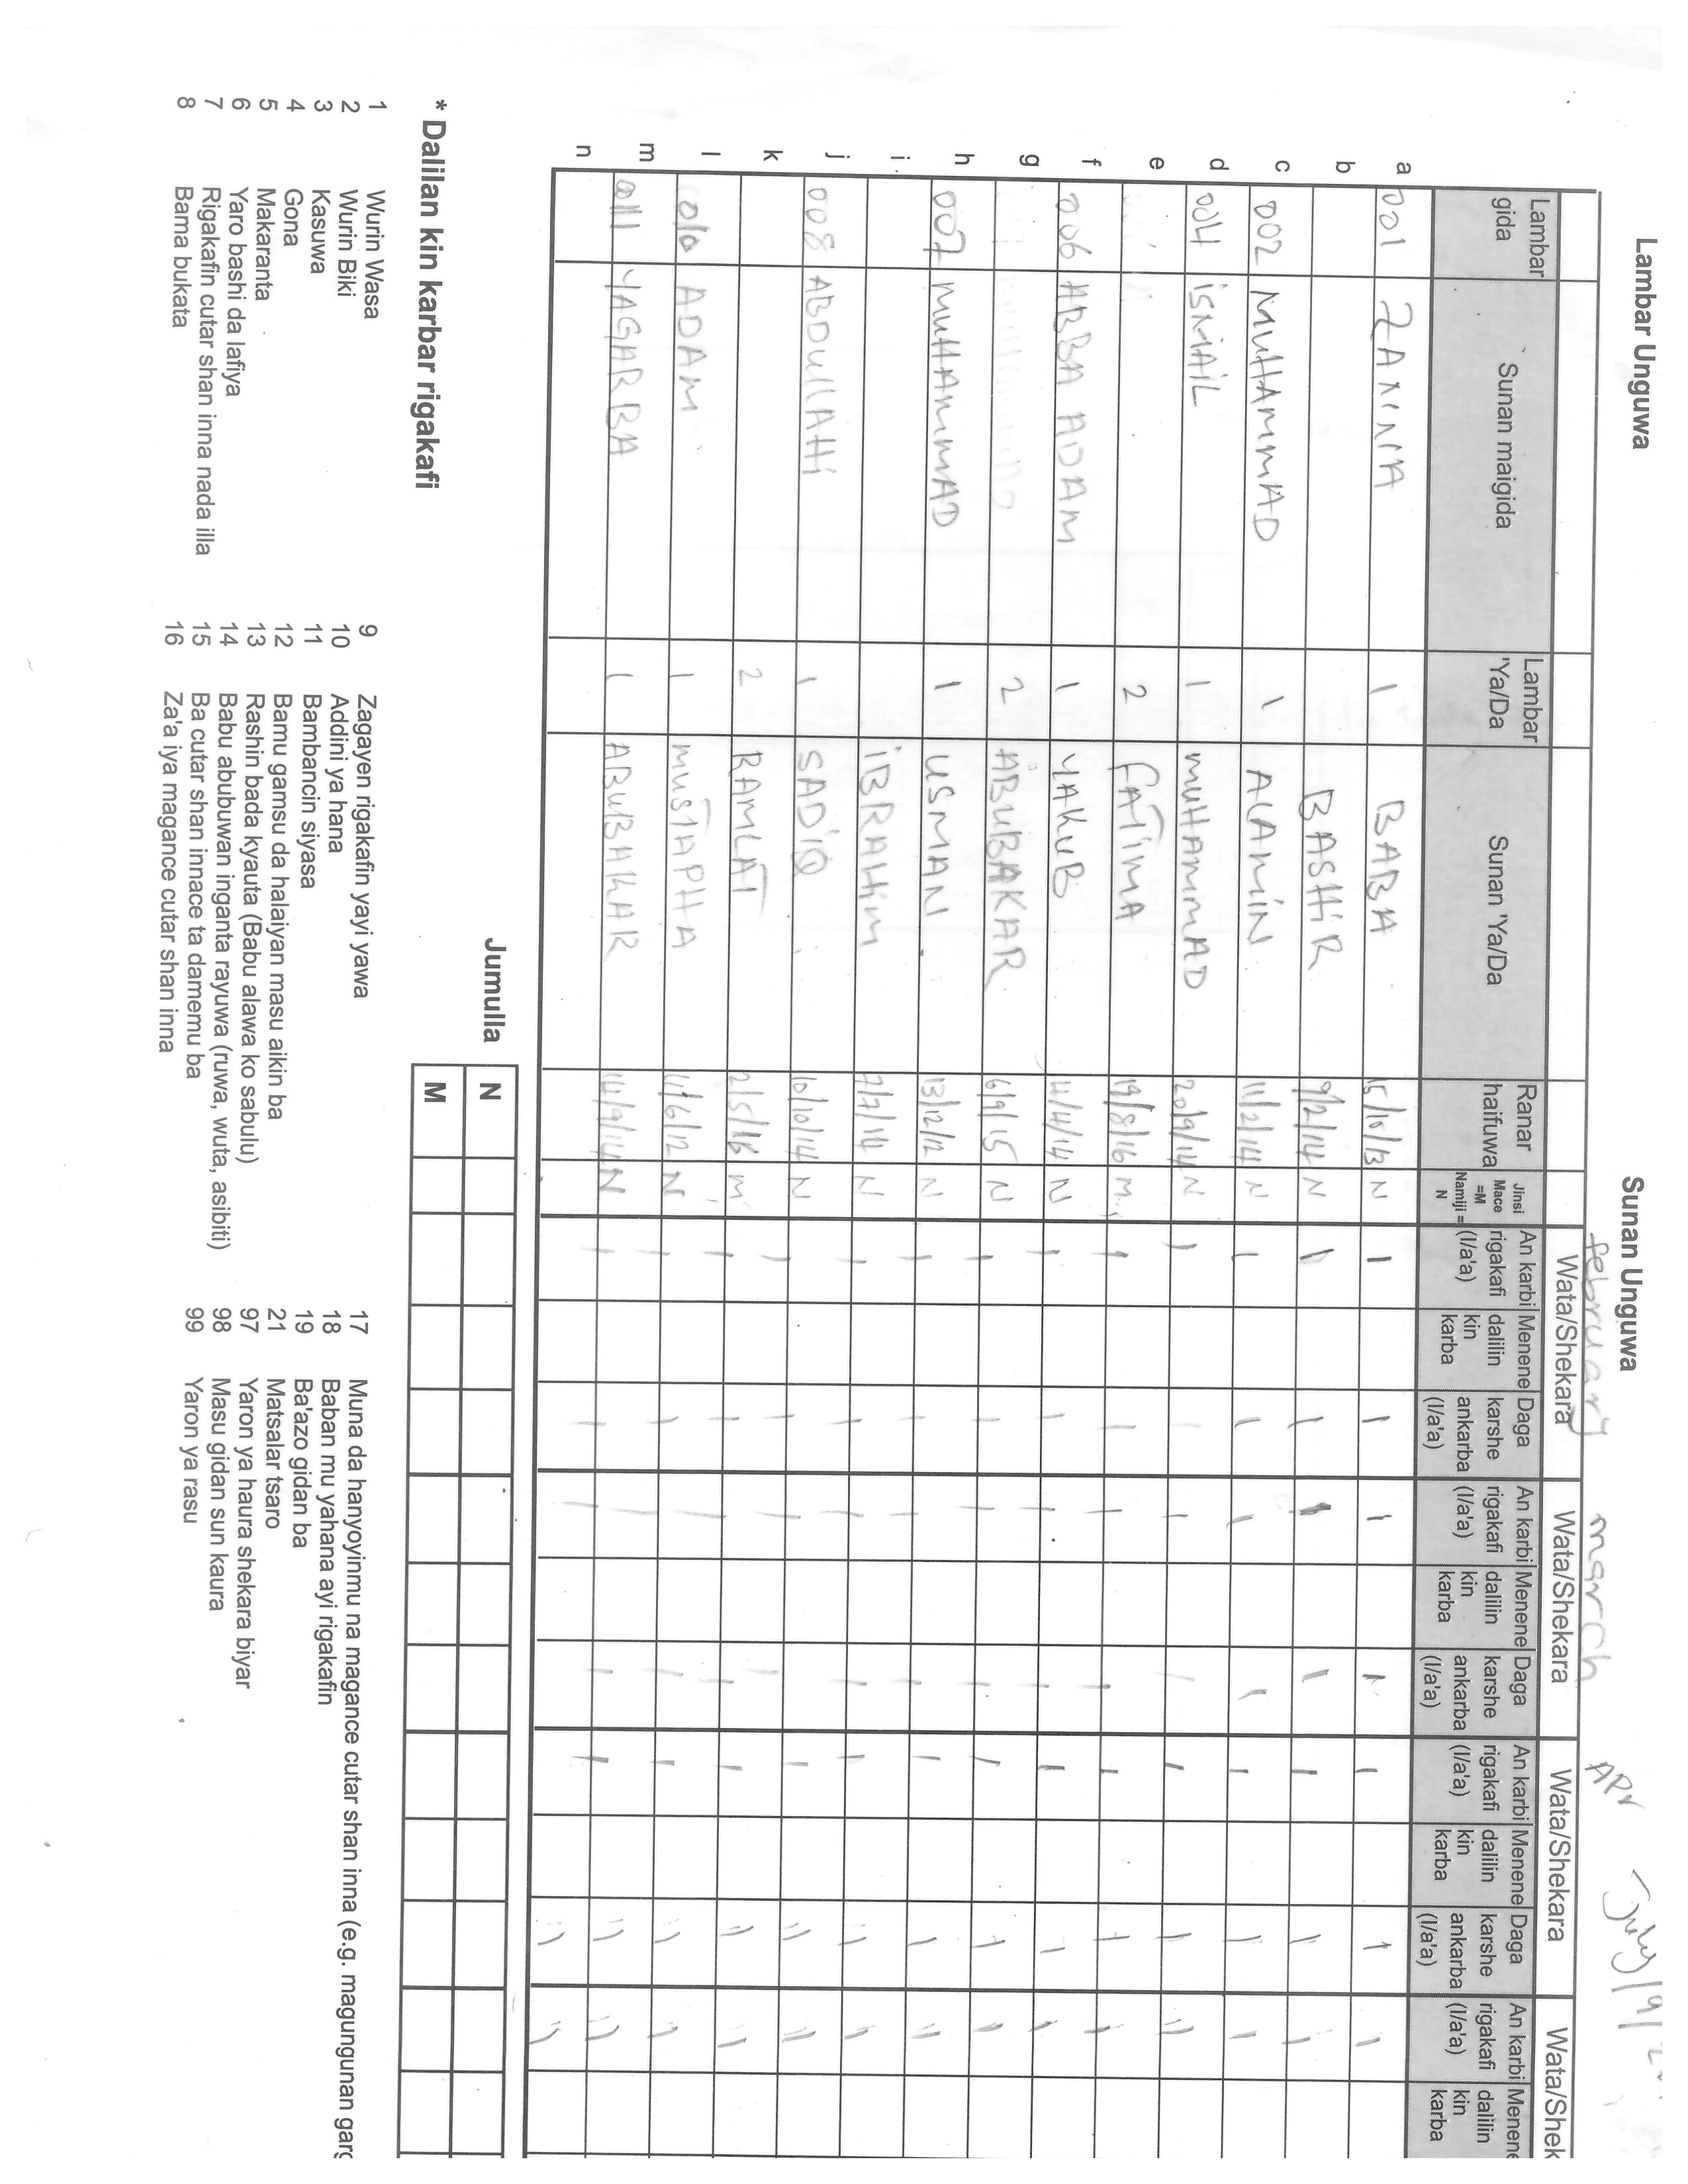 Lambar Unguwa Sunan Unguwa
february march APr July/19/
Wata/Shekara Wata/Shekara Wata/Shekara Wata/Shek
Lambar gida Sunan maigida Lambar 'Ya/Da Sunan 'Ya/Da Ranar haifuwa Jinsi Mace =M Namiji = N An karbi rigakafi (I/a'a) Menene dalilin kin karba Daga karshe ankarba (I/a'a) An karbi rigakafi (I/a'a) Menene dalilin kin karba Daga karshe ankarba (I/a'a) An karbi rigakafi (I/a'a) Menene dalilin kin karba Daga karshe ankarba (I/a'a) An karbi rigakafi (I/a'a) Menene dalilin kin karba
a 001 1 BABA 15/10/13 N
b BASHiR 9/2/14 N
c 002 MUHAMMAD 1 ALAMiN 11/2/14 N
d 004 iSMAiL 1 MUHAMMAD 20/9/14 N
e 2 FATiMA 19/8/16 M
f 006 ABBA ADAM 1 YAKUB 4/4/14 N
g 2 ABUBAKAR 6/9/15 N
h 007 MUHAMMAD 1 USMAN 13/12/12 N
i iBRAHiM 7/7/14 N
j 008 ABDULLAHi 1 SADiQ 10/10/14 N
k 2 RAMLAT 2/5/16 M
l 010 ADAM 1 MUSTAPHA 11/6/12 N
m 011 YAGARBA 1 ABUBAKAR 14/9/14 N
n
Jumulla N
M
* Dalilan kin karbar rigakafi
1 Wurin Wasa
2 Wurin Biki
3 Kasuwa
4 Gona
5 Makaranta
6 Yaro bashi da lafiya
7 Rigakafin cutar shan inna nada illa
8 Bama bukata
9 Zagayen rigakafin yayi yawa
10 Addini ya hana
11 Bambancin siyasa
12 Bamu gamsu da halaiyan masu aikin ba
13 Rashin bada kyauta (Babu alawa ko sabulu)
14 Babu abubuwan inganta rayuwa (ruwa, wuta, asibiti)
15 Ba cutar shan innace ta damemu ba
16 Za'a iya magance cutar shan inna
17 Muna da hanyoyinmu na magance cutar shan inna (e.g. magungunan garg
18 Baban mu yahana ayi rigakafin
19 Ba'azo gidan ba
21 Matsalar tsaro
97 Yaron ya haura shekara biyar
98 Masu gidan sun kaura
99 Yaron ya rasu